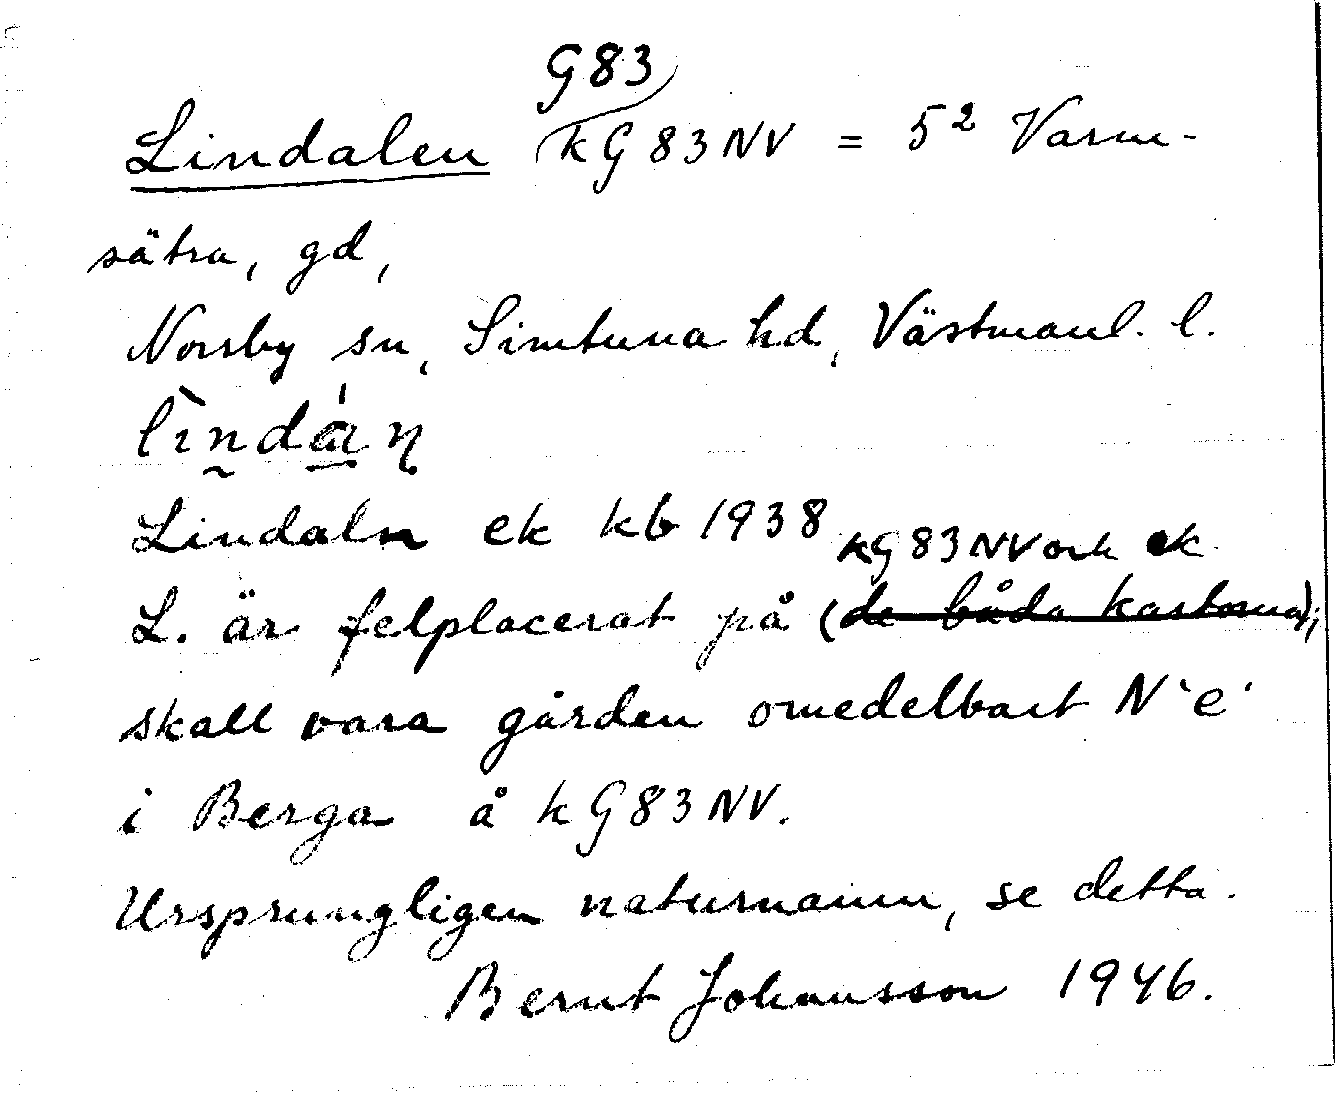 G83
Lindalen kG83NV = 5² Varm-
sätra, gd,
Norrby sn, Simtuna hd, Västmanl. l.
Lindaln ek kb 1938
kG83NV och ek
L. är felplacerat på (de båda kartorna);
skall vara gården omedelbart N 'e'
i Berga å kG83NV.
Ursprungligen naturnamn, se detta.
Bernt Johansson 1946.